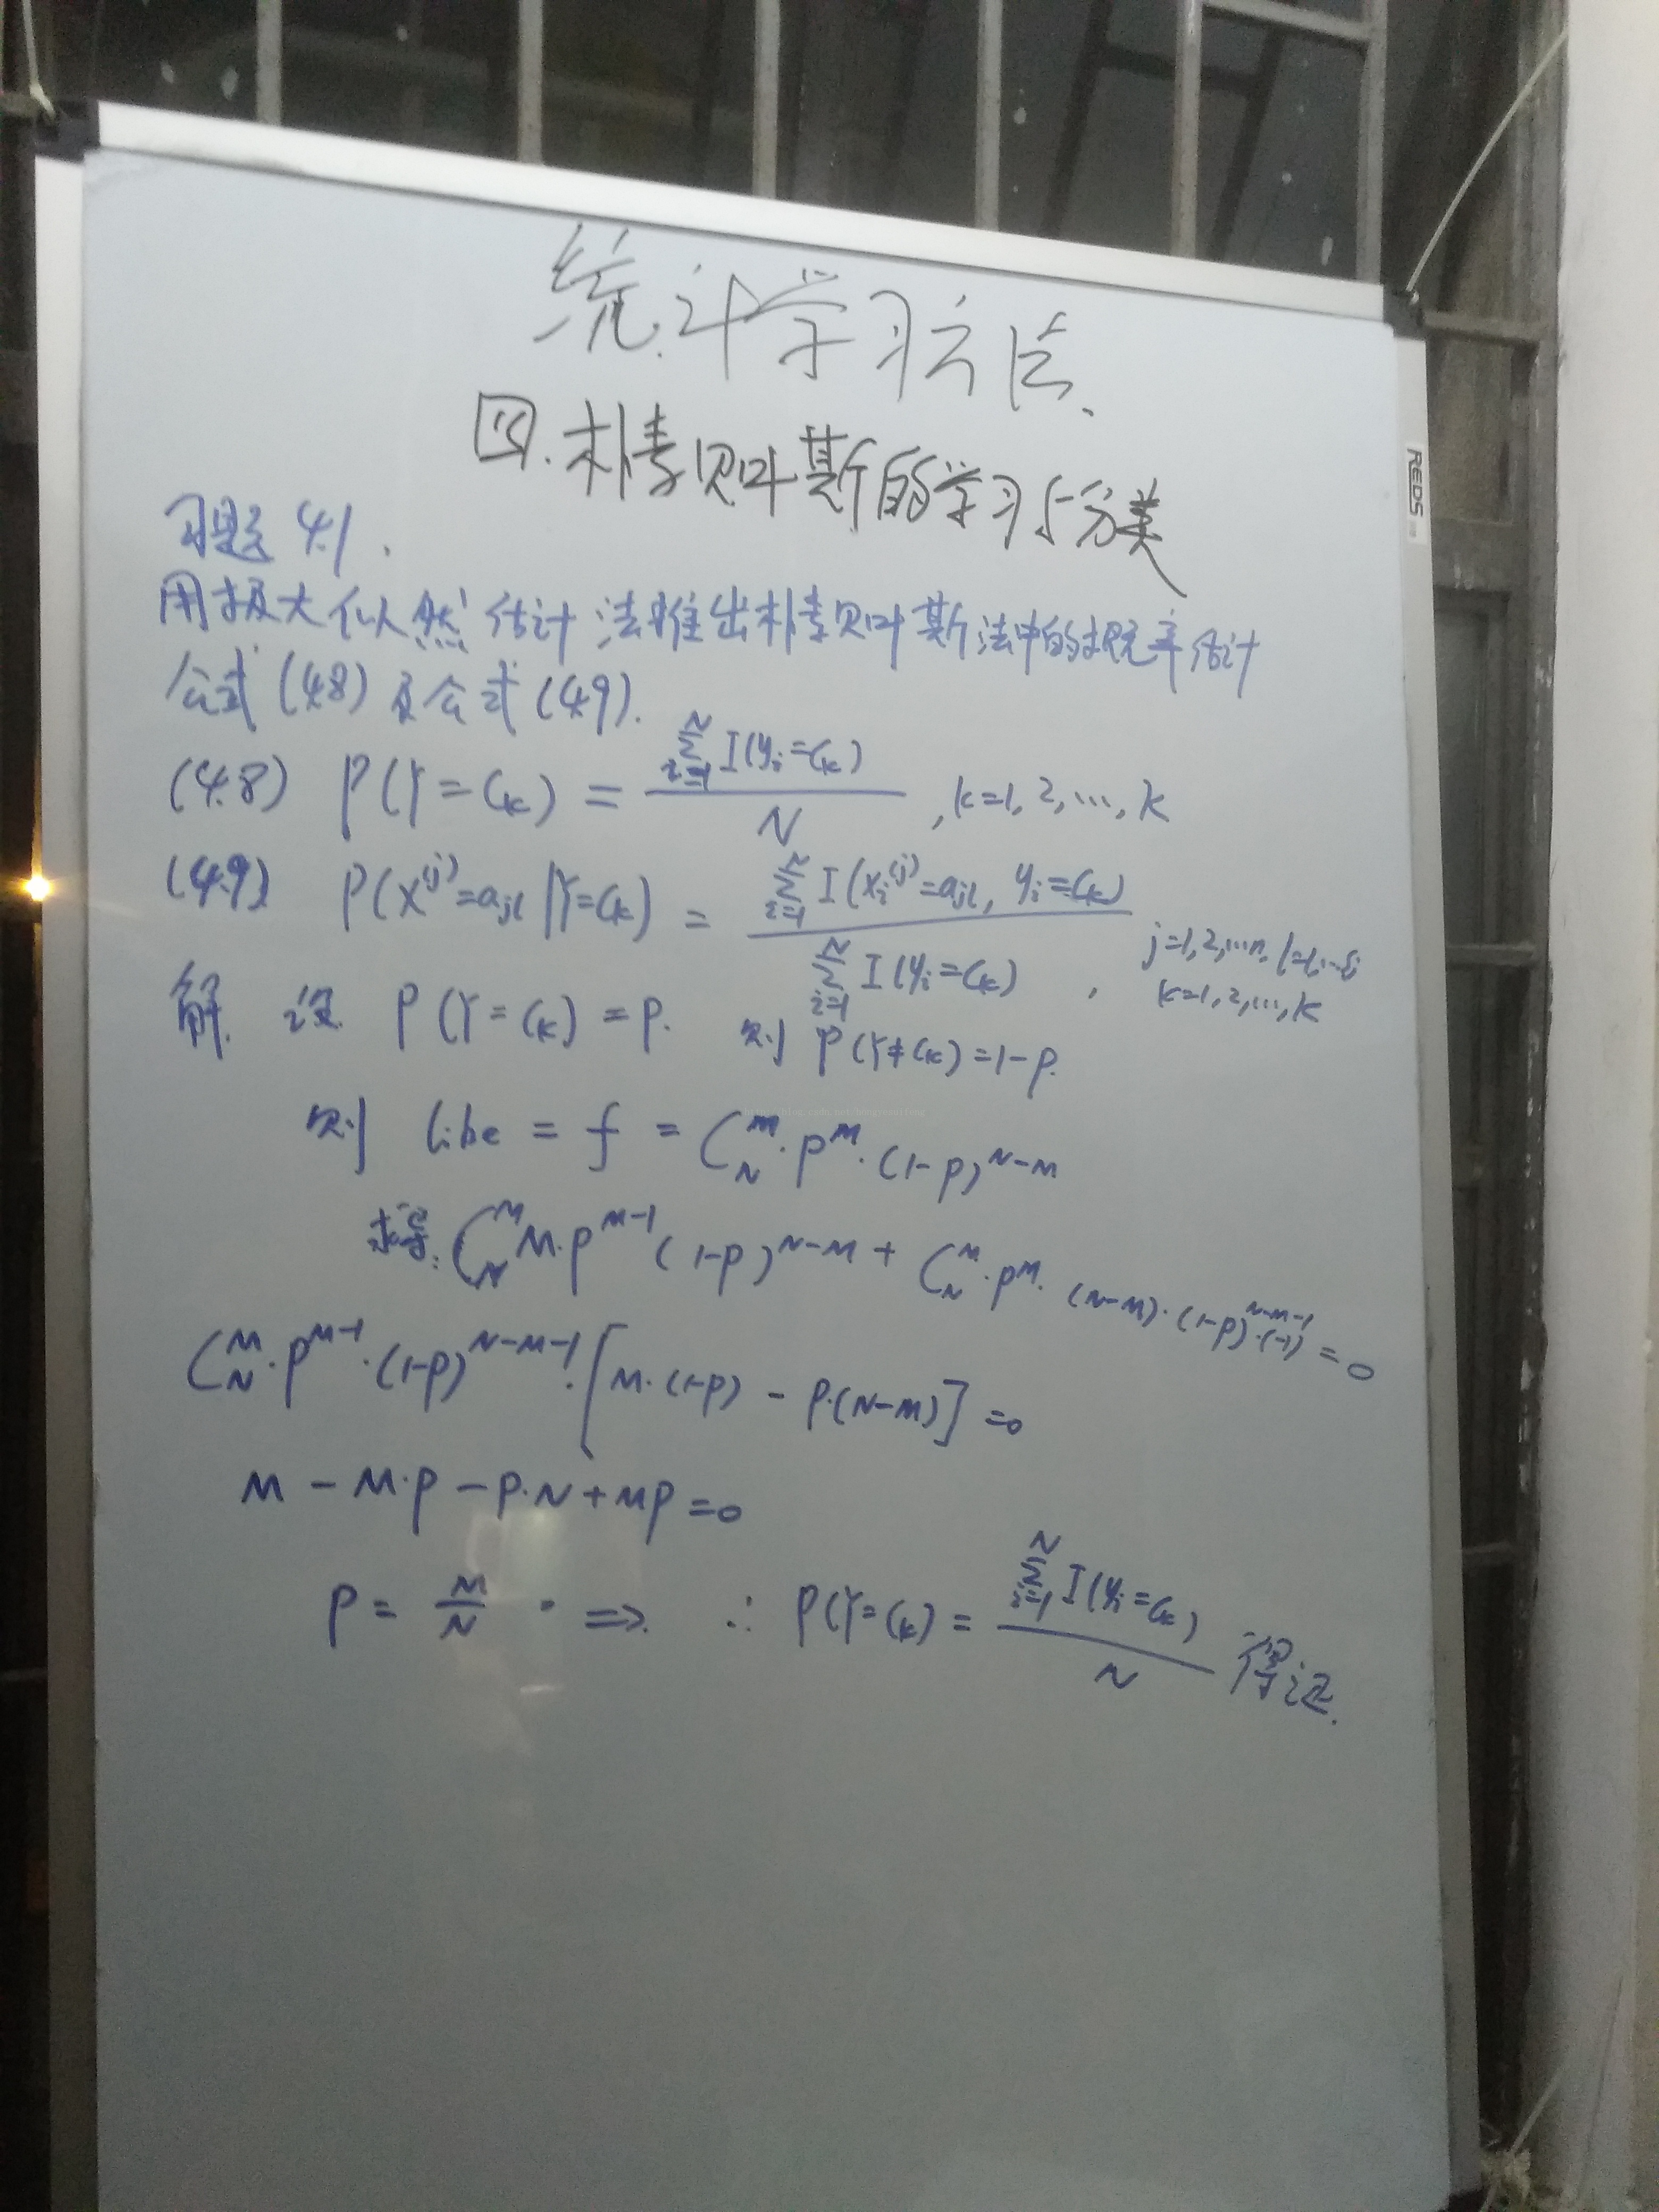 统计学习方法.
四.朴素贝叶斯的学习与分类
习题4.1.
用极大似然估计法推出朴素贝叶斯法中的概率估计
公式(4.8)及公式(4.9).
(4.8) P(Y=Ck) = ∑_{i=1}^{N} I(yi=Ck) / N , k=1,2,…,k
(4.9) P(X^(j)=ajl|Y=Ck) = ∑_{i=1}^{N} I(xi^(j)=ajl, yi=Ck) / ∑_{i=1}^{N} I(yi=Ck) , j=1,2,…n, l=1,…Sj
k=1,2,…,k
解. 设 P(Y=Ck)=p. 则 P(Y≠Ck)=1-p.
则 like = f = C_N^M·p^M·(1-p)^{N-M}
求导: C_N^M M·p^{M-1}(1-p)^{N-M} + C_N^M·p^M·(N-M)·(1-p)^{N-M-1}·(-1) = 0
C_N^M·p^{M-1}·(1-p)^{N-M-1}·[M·(1-p) - p·(N-M)] = 0
M - M·p - p·N + Mp = 0
p = M/N · ⇒ ∴ P(Y=Ck) = ∑_{i=1}^{N} I(yi=Ck) / N 得证.
REDS